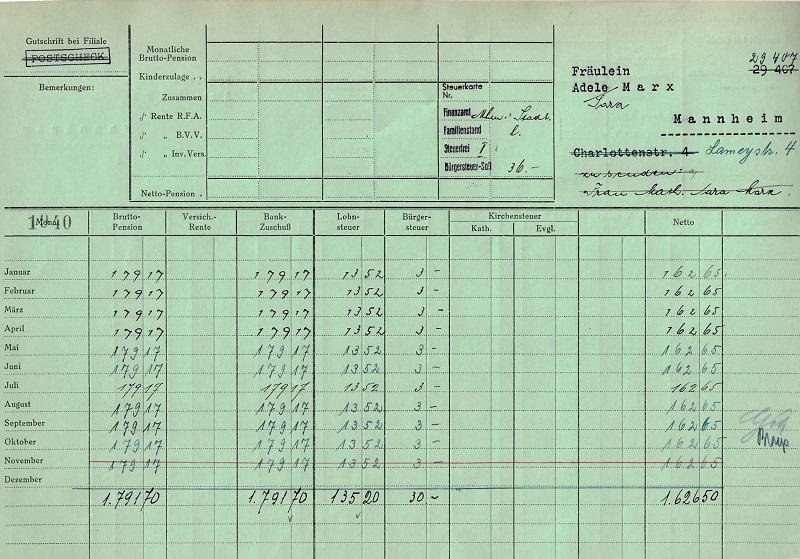 Gutschrift bei Filiale
POSTSCHECK
Bemerkungen:
Monatliche
Brutto-Pension
Kinderzulage . .
Zusammen
./. Rente R.F.A.
./. „ B.V.V.
./. „ Inv.Vers.
Netto-Pension .
Steuerkarte
Nr.
Finanzamt Mhm.-Stadt
Familienstand l.
Steuerfrei I
Bürgersteuer-Soll 36.–
29 407
29 467
Fräulein
Adele Marx
Sara
Mannheim
Charlottenstr. 4 Lameystr. 4
zu senden:
Frau Math. Sara Marx
1940
Monat Brutto-Pension Versich.-Rente Bank-Zuschuß Lohn-steuer Bürger-steuer Kirchensteuer Kath. Evgl. Netto
Januar 179 17 179 17 13 52 3 – 162 65
Februar 179 17 179 17 13 52 3 – 162 65
März 179 17 179 17 13 52 3 – 162 65
April 179 17 179 17 13 52 3 – 162 65
Mai 179 17 179 17 13 52 3 – 162 65
Juni 179 17 179 17 13 52 3 – 162 65
Juli 179 17 179 17 13 52 3 – 162 65
August 179 17 179 17 13 52 3 – 162 65
September 179 17 179 17 13 52 3 – 162 65
Oktober 179 17 179 17 13 52 3 – 162 65
November 179 17 179 17 13 52 3 – 162 65
Dezember
1.791 70 1.791 70 135 20 30 – 1.626 50